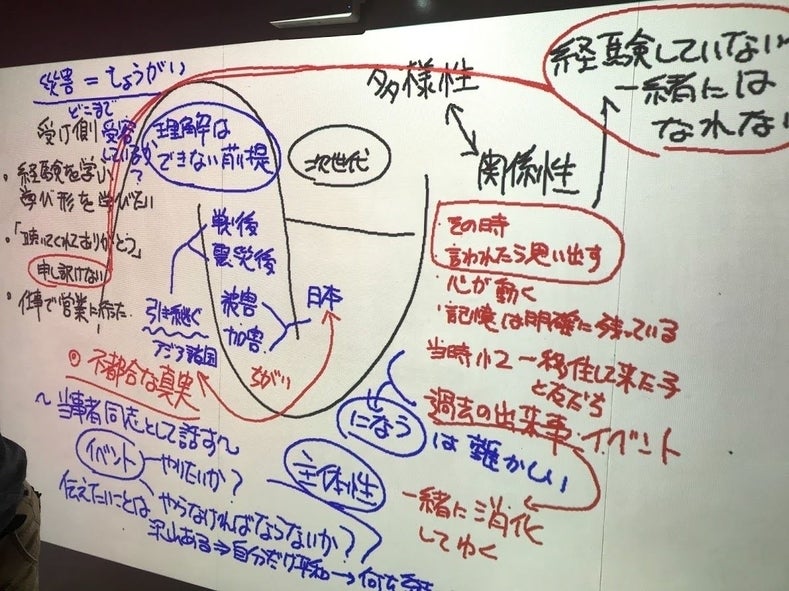 災害=しょうがい
どこまで
受け側 受容
しているか?
・経験を学ぶ
学び形を学びたい
・「聴いてくれてありがとう」
申し訳けない
・仕事で営業に
理解は
できない前提
次世代
多様性
関係性
経験していない
一緒には
なれない
戦後
震災後
引き継ぐ
アジア諸国
被害
加害
日本
ちがい
◎不都合な真実
その時
言われたら思い出す
・心が動く
・記憶は明確に残っている
当時小2-移住して来た子
と友だち
過去の出来事・イベント
になう は難かしい
一緒に消化
してゆく
〜当事者同志として話す
イベント やりたいか?
やらなければならないか?
主体性
伝えたいことは
沢山ある⇒自分だけ平和→何を